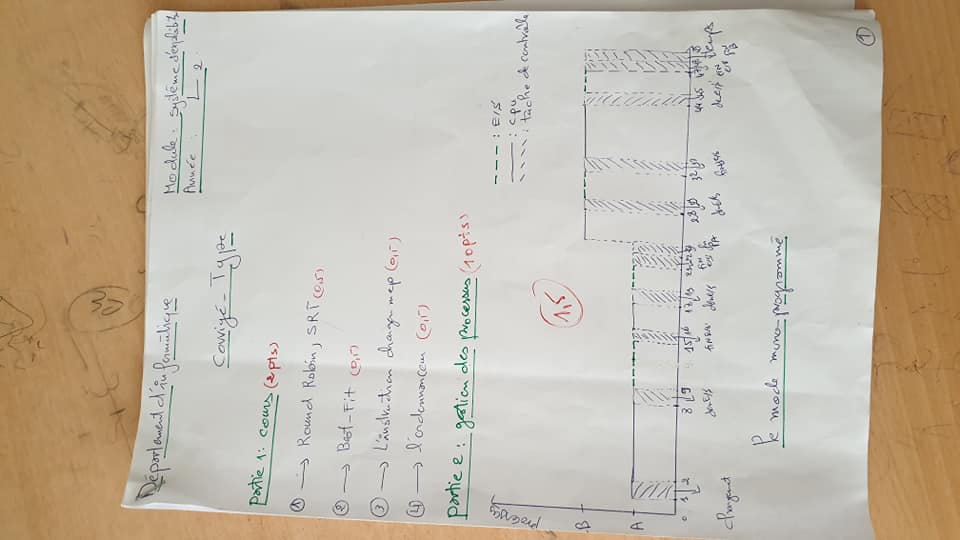 Département d'informatique
Module : système d'exploit
Année : L2
Corrigé-Type
Partie 1 : cours (2 pts)
① → Round Robin, SRT (0,5)
② → Best-Fit (0,5)
③ → L'instruction charger mep (0,5)
④ → l'ordonnanceur (0,5)
Partie 2 : gestion des processus (10 pts)
processus
: E/S
: cpu
: tâche de contrôle
1,5
B
A
0 1 2 8 9 15 16 18 19
44 45
temps
chargement
dem E/S
fin E/S
dem E/S
Le mode mono-programmé
①